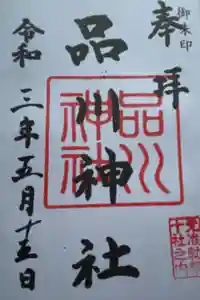 御朱印
奉拝
品川神社
品川
神社
元准勅祭
十社之内
令和三年五月十五日